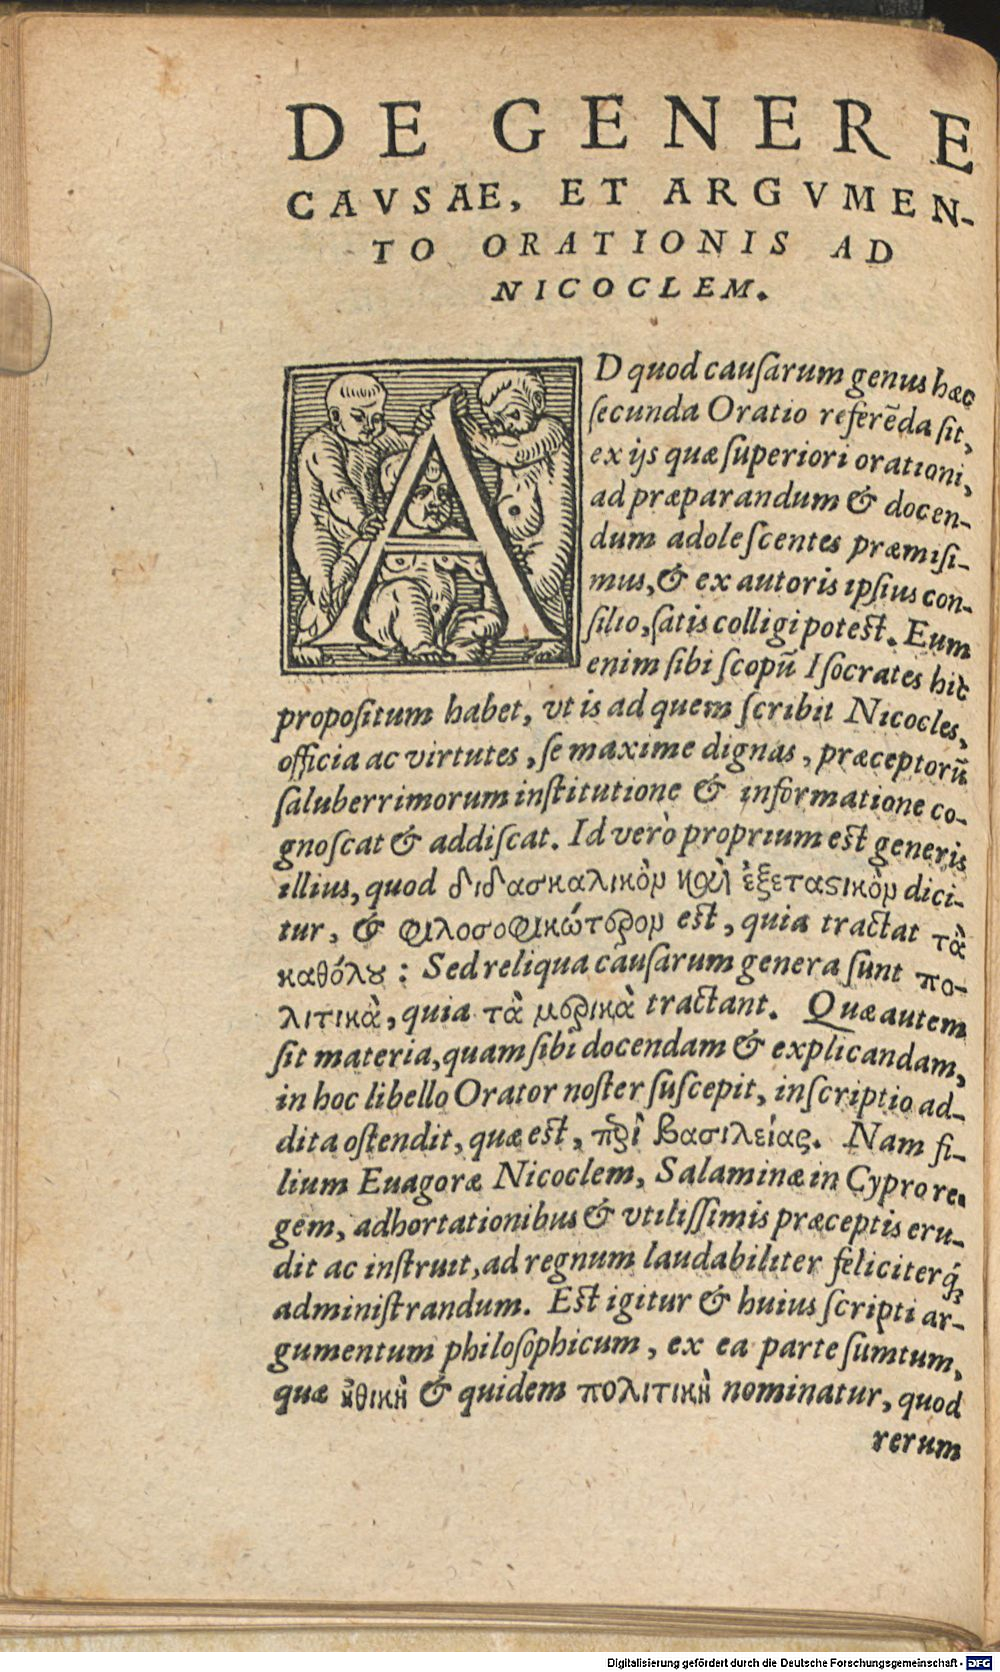 DE GENERE
CAVSAE, ET ARGVMEN-
TO ORATIONIS AD
NICOCLEM.
AD quod cauſarum genus hæc
ſecunda Oratio referēda ſit,
ex ijs quæ ſuperiori orationi,
ad præparandum & docen-
dum adoleſcentes præmiſi-
mus, & ex autoris ipſius con-
ſilio, ſatis colligi poteſt. Eum
enim ſibi ſcopū Iſocrates hic
propoſitum habet, vt is ad quem ſcribit Nicocles,
officia ac virtutes, ſe maxime dignas, præceptorū
ſaluberrimorum inſtitutione & informatione co-
gnoſcat & addiſcat. Id verò proprium eſt generis
illius, quod διδασκαλικὸν καὶ ἐξεταϛικὸν dici-
tur, & φιλοσοφικώτερον eſt, quia tractat τὰ
καθόλȣ: Sed reliqua cauſarum genera ſunt πο-
λιτικὰ, quia τὰ μερικὰ tractant. Quæ autem
ſit materia, quam ſibi docendam & explicandam,
in hoc libello Orator noſter ſuſcepit, inſcriptio ad-
dita oſtendit, quæ eſt, περὶ βασιλείας. Nam fi-
lium Euagoræ Nicoclem, Salaminæ in Cypro re-
gem, adhortationibus & vtiliſſimis præceptis eru-
dit ac inſtruit, ad regnum laudabiliter feliciterq́;
adminiſtrandum. Eſt igitur & huius ſcripti ar-
gumentum philoſophicum, ex ea parte ſumtum,
quæ ἠθικὴ & quidem πολιτικὴ nominatur, quod
rerum
Digitalisierung gefördert durch die Deutsche Forschungsgemeinschaft - DFG